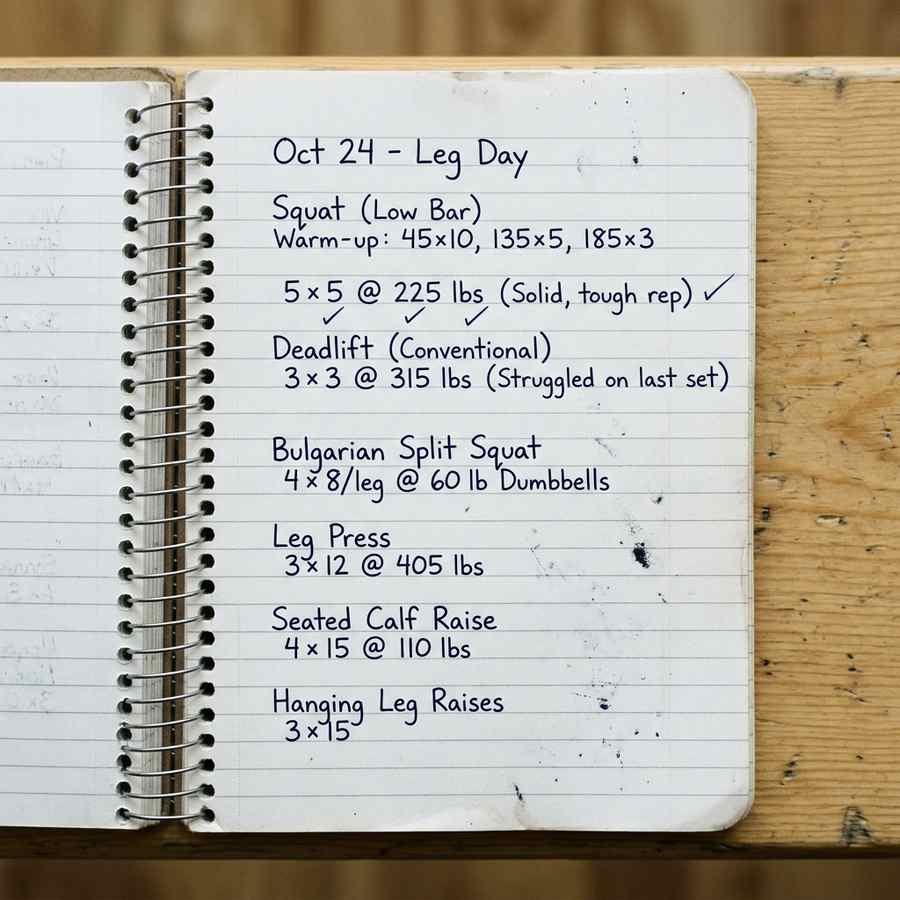 Oct 24 - Leg Day
Squat (Low Bar)
Warm-up: 45×10, 135×5, 185×3
5×5 @ 225 lbs (Solid, tough rep) ✓
✓ ✓ ✓
Deadlift (Conventional)
3×3 @ 315 lbs (Struggled on last set)
Bulgarian Split Squat
4×8/leg @ 60 lb Dumbbells
Leg Press
3×12 @ 405 lbs
Seated Calf Raise
4×15 @ 110 lbs
Hanging Leg Raises
3×15